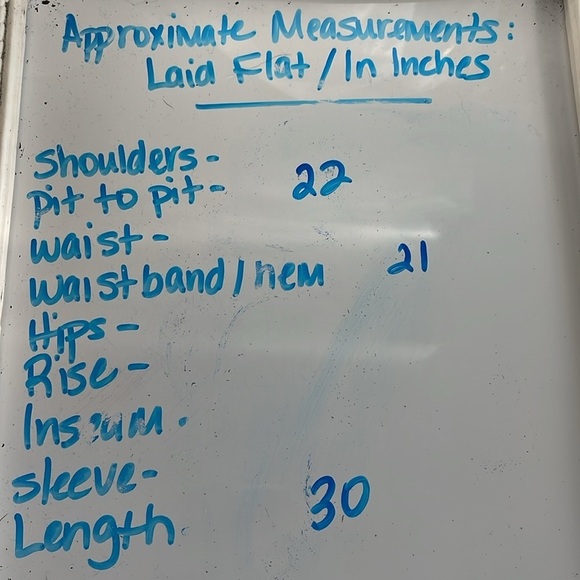 Approximate Measurements:
Laid Flat / In Inches
Shoulders -
pit to pit - 22
waist -
waistband / hem 21
Hips -
Rise -
Inseam -
sleeve -
Length 30